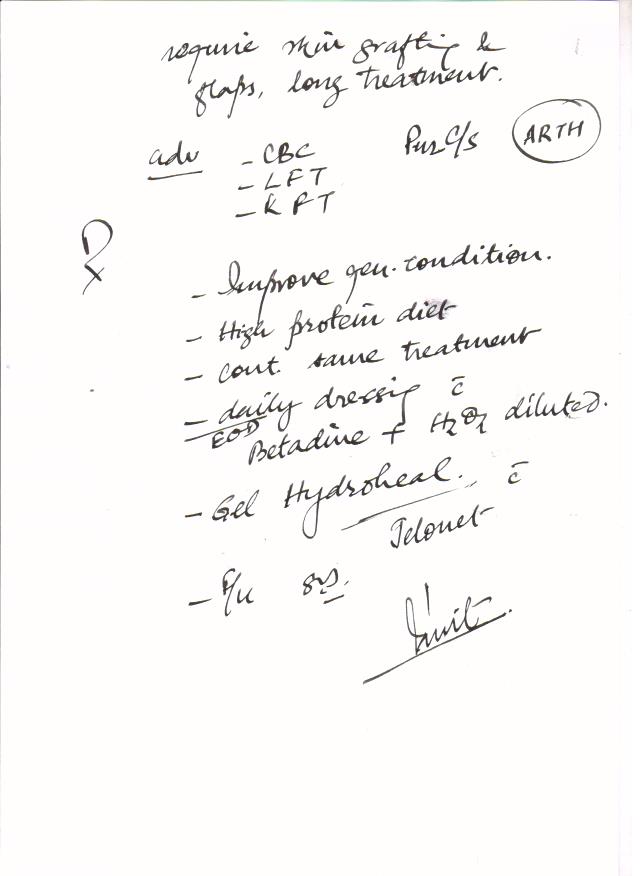 require skin grafting &
flaps, long treatment.
adv - CBC Pus C/s ARTH
- LFT
- KFT
Rx
- Improve gen. condition.
- High protein diet
- Cont. same treatment
- daily dressing c̄
EOD
Betadine + H2O2 diluted.
- Gel Hydroheal. c̄
Jelonet
- F/U SOS.